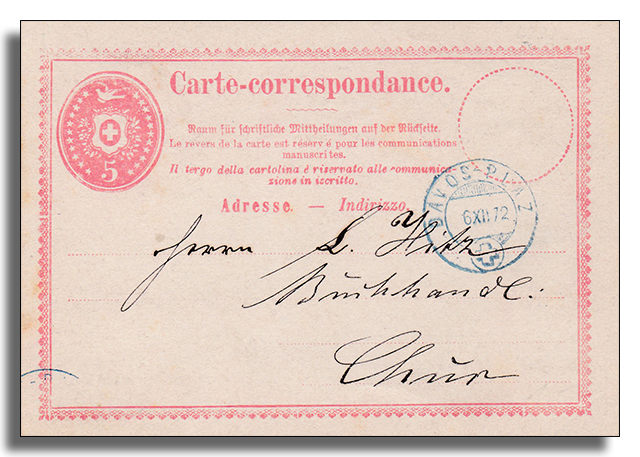 Carte-correspondance.
5
Raum für schriftliche Mittheilungen auf der Rückseite.
Le revers de la carte est réservé pour les communications
manuscrites.
Il tergo della cartolina è riservato alle communica-
zione in iscritto.
Adresse. — Indirizzo.
DAVOS-PLAZ
6XII72
Herrn L. Hitz
Buchhandl:
Chur